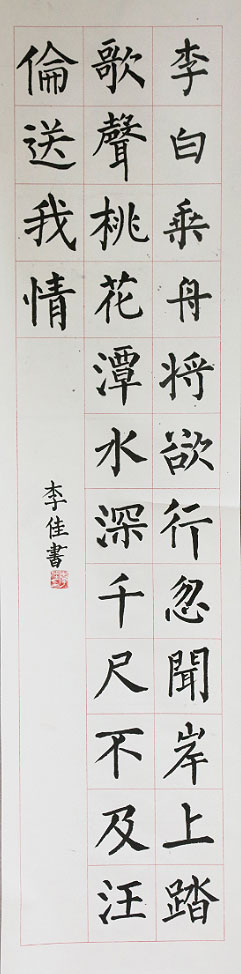 李白乘舟将欲行忽聞岸上踏
歌聲桃花潭水深千尺不及汪
倫送我情
李佳書